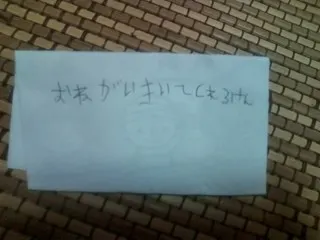 おねがいきいてくれるけん